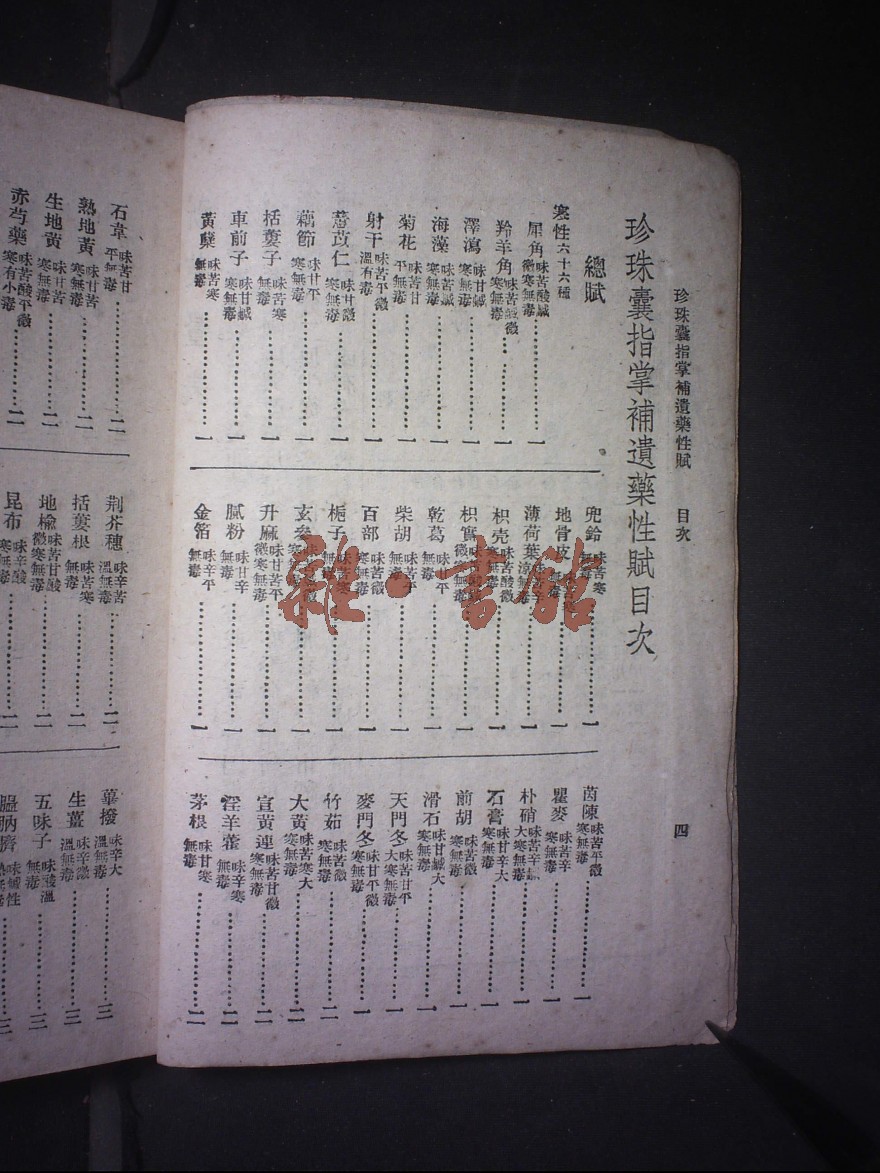 珍珠囊指掌補遺藥性賦　目次　四
珍珠囊指掌補遺藥性賦目次
總賦
寒性六十六種
犀角味苦酸鹹微寒無毒一
羚羊角味苦鹹微寒無毒一
澤瀉味甘鹹寒無毒一
海藻味苦鹹寒無毒一
菊花味苦甘平無毒一
射干味苦平微溫有毒一
薏苡仁味甘微寒無毒一
藕節味甘平寒無毒一
括蔞子味苦寒無毒一
車前子味甘鹹寒無毒一
黃蘗味苦寒無毒一
兜鈴味苦寒無毒一
地骨皮一
薄荷葉一
枳壳味苦酸微寒無毒一
枳實一
乾葛味甘平無毒一
柴胡味苦平無毒一
百部味苦微寒無毒一
梔子一
玄參一
升麻味甘苦平微寒無毒一
膩粉味甘辛無毒一
金箔味辛平無毒一
茵陳味苦平微寒無毒一
瞿麥味苦辛寒無毒一
朴硝味苦辛鹹大寒無毒一
石膏味甘辛大寒無毒一
前胡味苦微寒無毒一
滑石味甘鹹大寒無毒一
天門冬味苦甘平大寒無毒一
麥門冬味甘平微寒無毒一
竹茹味苦微寒無毒二
大黃味苦寒大寒無毒二
宣黃連味苦甘微寒無毒二
淫羊藿味辛寒無毒二
茅根味甘寒無毒二
石韋味苦甘平無毒二
熟地黃味甘苦寒無毒二
生地黃味甘苦寒無毒二
赤芍藥味苦酸平微寒有小毒二
荆芥穗味辛苦溫無毒二
括蔞根味苦寒無毒二
地榆味苦甘酸微寒無毒二
昆布味辛酸寒無毒二
蓽撥味辛大溫無毒三
生薑味辛微溫無毒三
五味子味酸溫無毒三
膃肭臍味鹹性熱無毒三
雜·書館